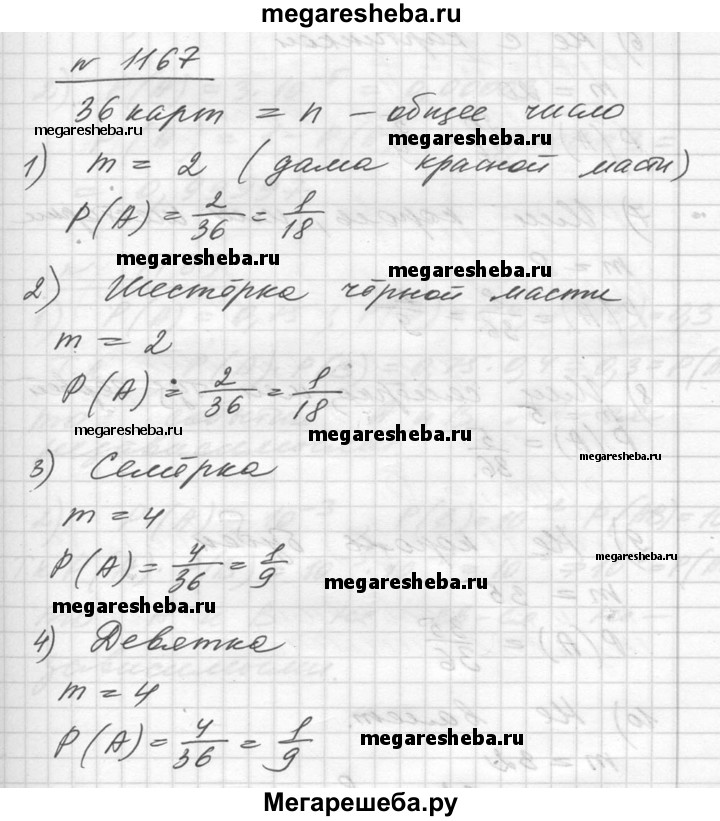 megaresheba.ru
№ 1167
36 карт = n – общее число
megaresheba.ru
megaresheba.ru
1) m = 2 (дама красной масти)
P(A) = 2/36 = 1/18
megaresheba.ru
megaresheba.ru
2) Шестёрка чёрной масти
m = 2
P(A) = 2/36 = 1/18
megaresheba.ru
megaresheba.ru
3) Семёрка
megaresheba.ru
m = 4
P(A) = 4/36 = 1/9
megaresheba.ru
megaresheba.ru
megaresheba.ru
4) Девятка
m = 4
P(A) = 4/36 = 1/9
megaresheba.ru
Мегарешеба.ру